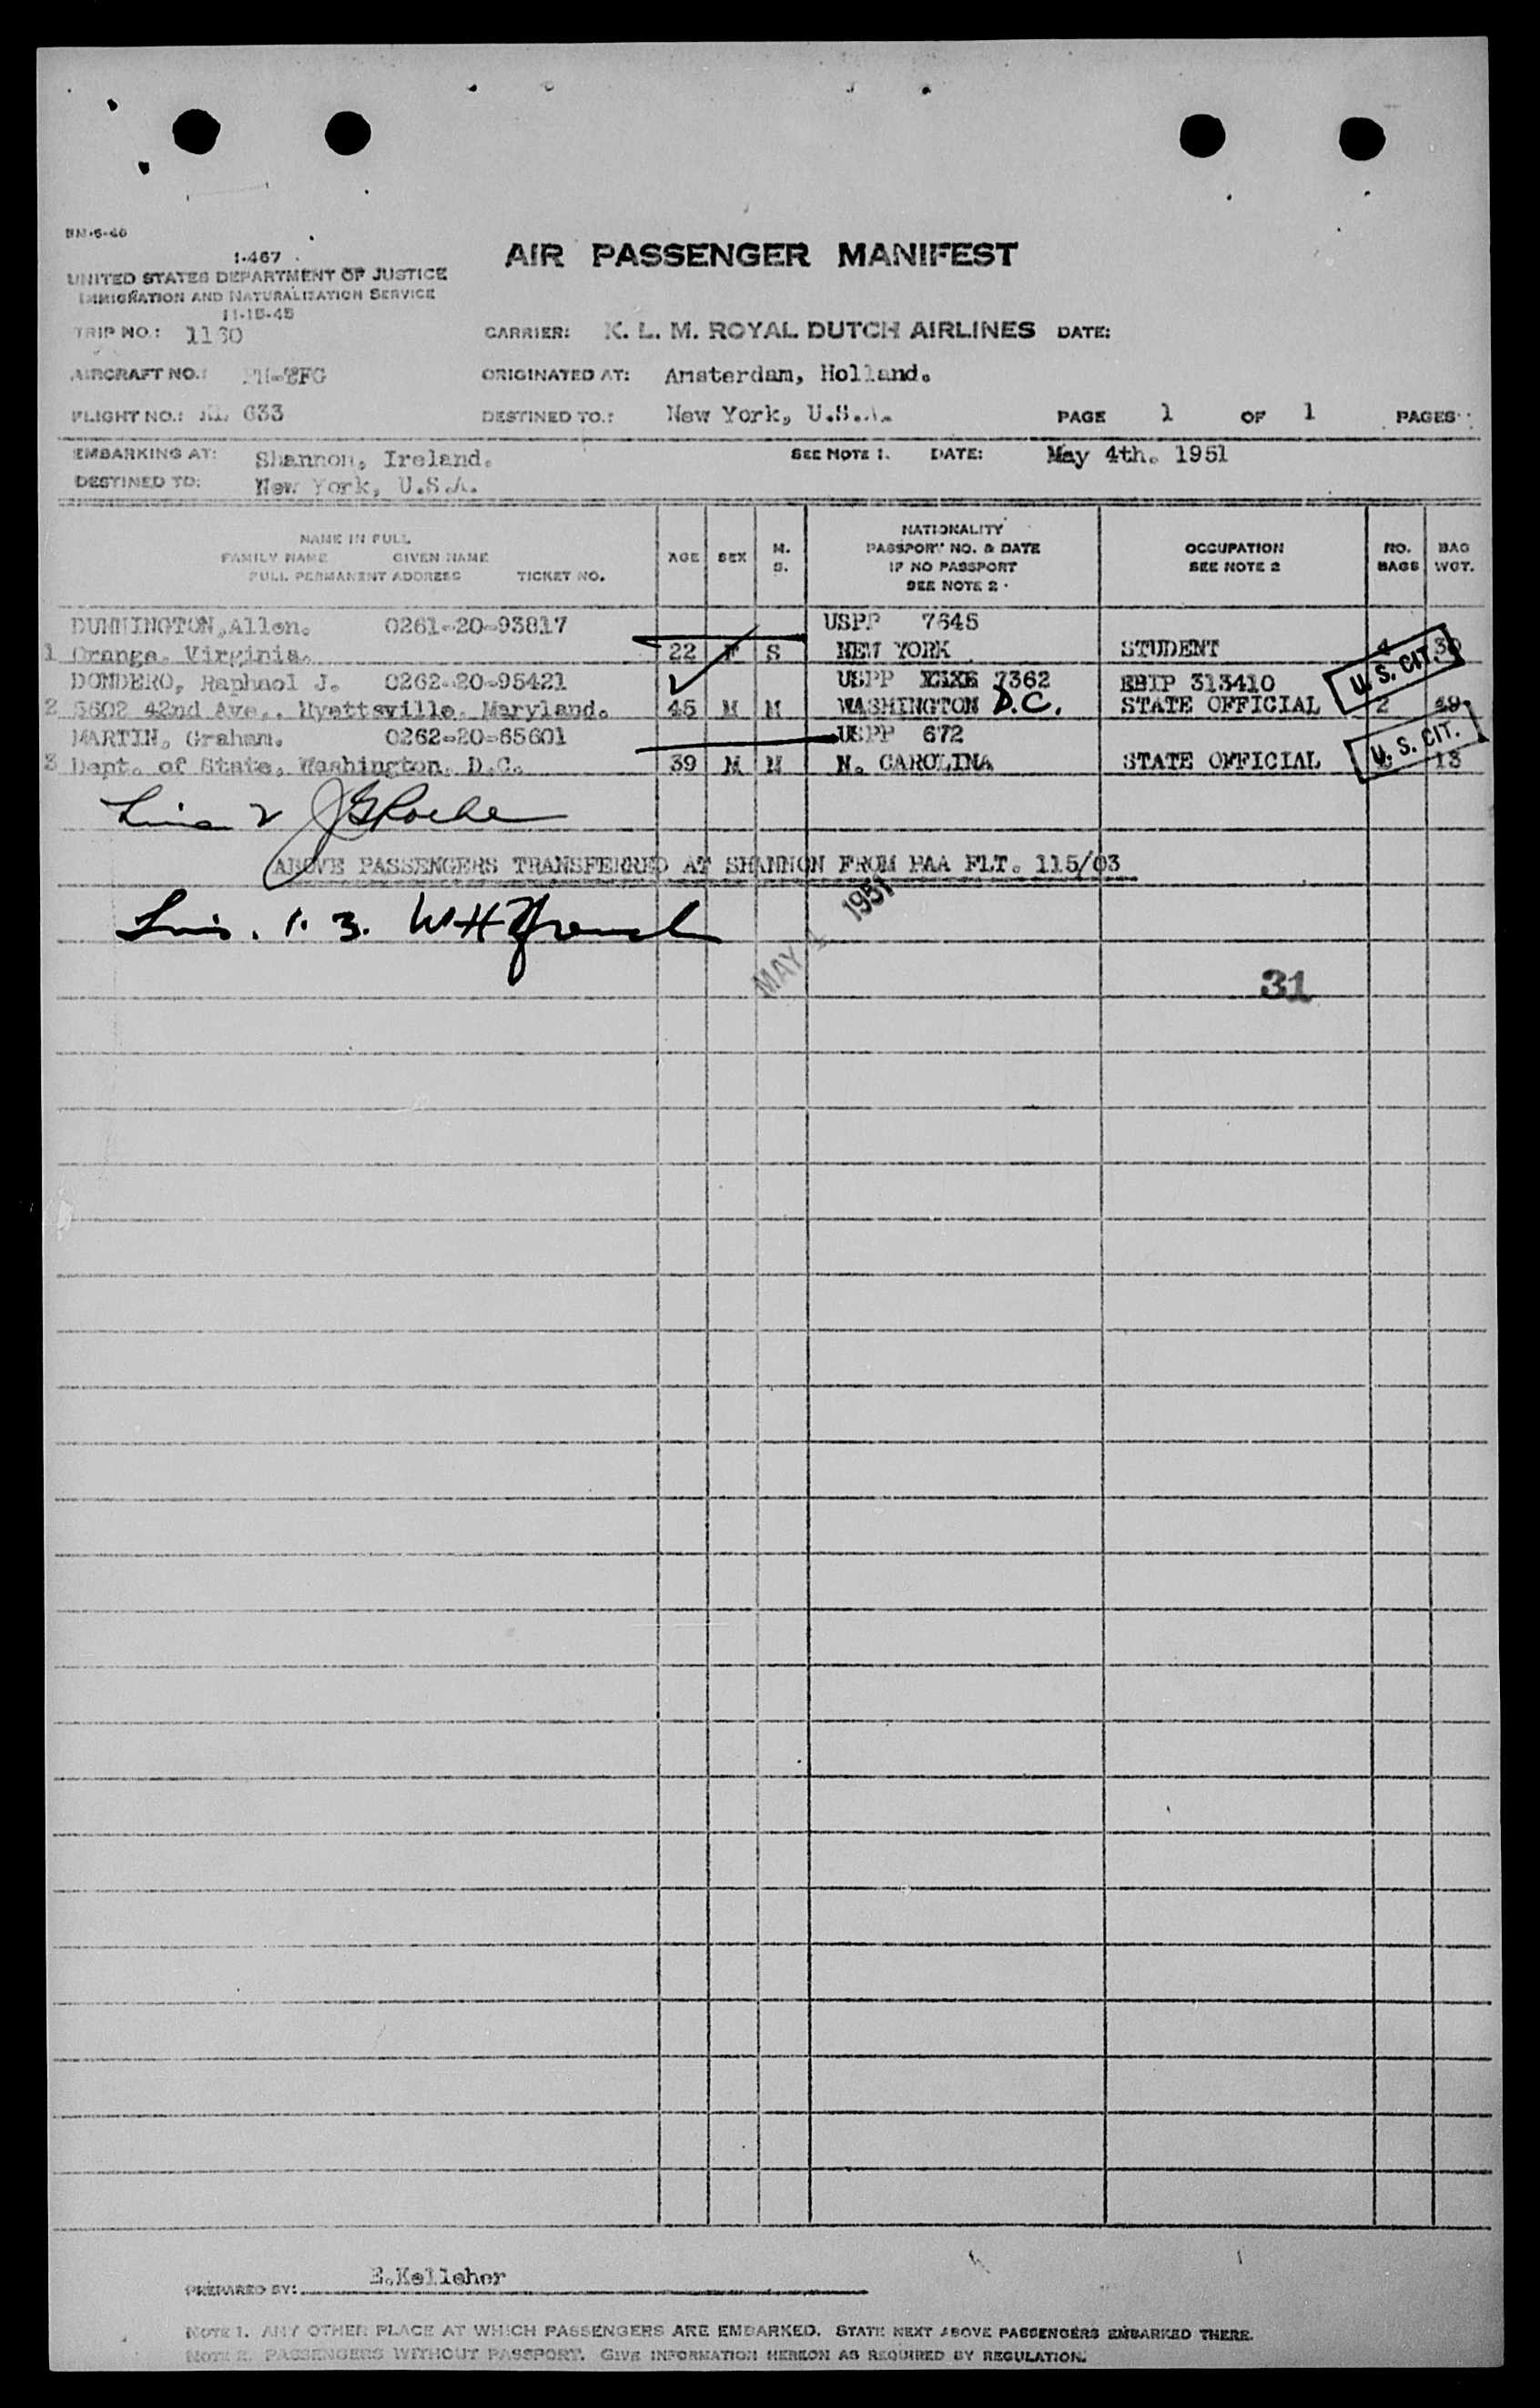 AIR PASSENGER MANIFEST
I-467
UNITED STATES DEPARTMENT OF JUSTICE
IMMIGRATION AND NATURALIZATION SERVICE
11-15-45
TRIP NO.: 1130 CARRIER: K. L. M. ROYAL DUTCH AIRLINES DATE:
AIRCRAFT NO.: ORIGINATED AT: Amsterdam, Holland.
FLIGHT NO.: KL 633 DESTINED TO.: New York, U.S.A. PAGE 1 OF 1 PAGES
EMBARKING AT: Shannon, Ireland. SEE NOTE 1. DATE: May 4th. 1951
DESTINED TO: New York, U.S.A.
NAME IN FULL
FAMILY NAME GIVEN NAME
FULL PERMANENT ADDRESS TICKET NO.
AGE SEX M. S.
NATIONALITY
PASSPORT NO. & DATE
IF NO PASSPORT
SEE NOTE 2
OCCUPATION
SEE NOTE 2
NO. BAGS
BAG WGT.
DUNNINGTON,Allen. 0261-20-93817 USPP 7645
1 Orange. Virginia. 22 F S NEW YORK STUDENT 4 30
DONDERO, Raphael J. 0262-20-95421 USPP 7362 EBIP 313410
U. S. CIT.
2 5602 42nd Ave,. Hyattsville. Maryland. 45 M M WASHINGTON D.C. STATE OFFICIAL 2 49
MARTIN, Graham. 0262-20-65601 USPP 672
U. S. CIT.
3 Dept. of State, Washington. D.C. 39 M M N. CAROLINA STATE OFFICIAL 13
ABOVE PASSENGERS TRANSFERRED AT SHANNON FROM PAA FLT. 115/03
1. 3.
MAY 1951
31
PREPARED BY: E.Kelleher
NOTE 1. ANY OTHER PLACE AT WHICH PASSENGERS ARE EMBARKED. STATE NEXT ABOVE PASSENGERS EMBARKED THERE.
NOTE 2. PASSENGERS WITHOUT PASSPORT. GIVE INFORMATION HEREON AS REQUIRED BY REGULATION.